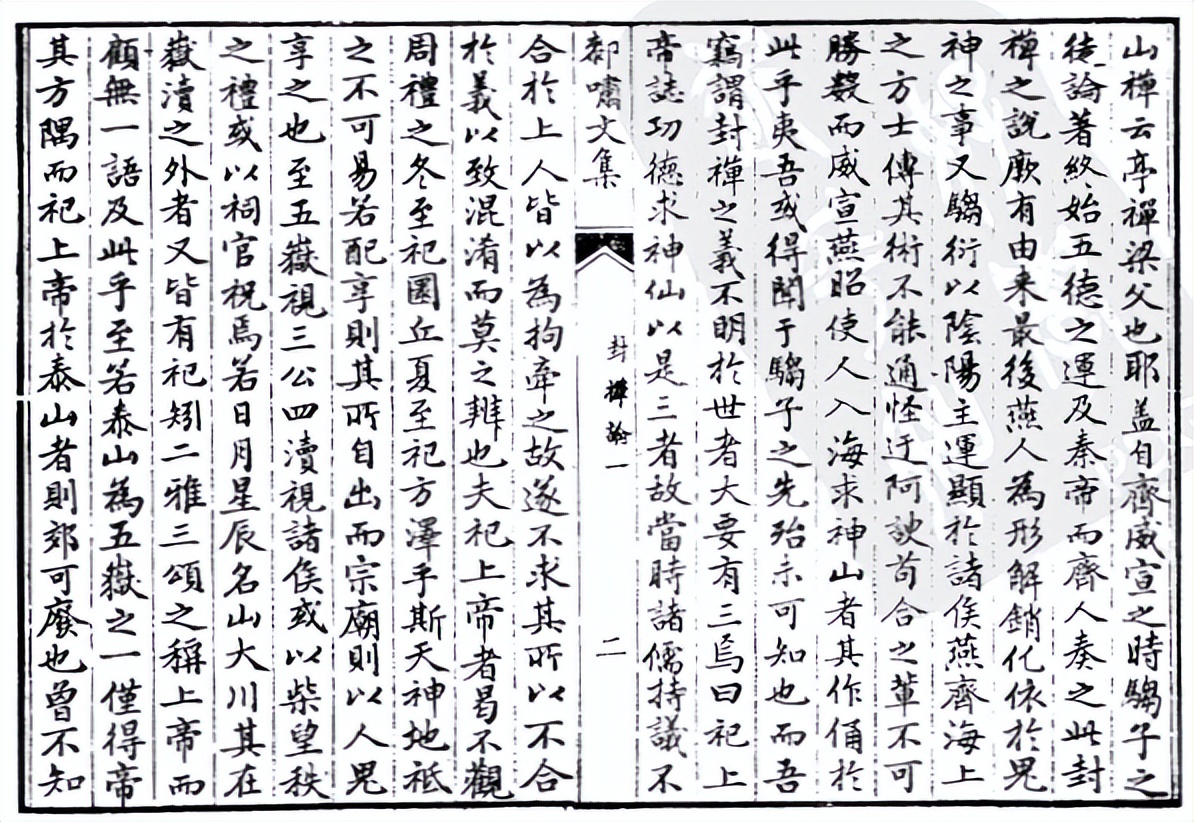 山禪云亭禪梁父也耶蓋自齊威宣之時騶子之
徒論著終始五德之運及秦帝而齊人奏之此封
禪之說厥有由來最後燕人為形解銷化依於鬼
神之事又騶衍以陰陽主運顯於諸侯燕齊海上
之方士傳其術不能通怪迂阿諛苟合之輩不可
勝數而威宣燕昭使人入海求神山者其作俑於
此乎夷吾或得聞于騶子之先殆未可知也而吾
竊謂封禪之義不明於世者大要有三焉曰祀上
帝誌功德求神仙以是三者故當時諸儒持議不
郄嘯文集
封禪論一
二
合於上人皆以為拘牽之故遂不求其所以不合
於義以致混淆而莫之辨也夫祀上帝者曷不觀
周禮之冬至祀圜丘夏至祀方澤乎斯天神地祗
之不可易若配享則其所自出而宗廟則以人鬼
享之也至五嶽視三公四瀆視諸侯或以柴望秩
之禮或以祠官祝焉若日月星辰名山大川其在
嶽瀆之外者又皆有祀矧二雅三頌之稱上帝而
顧無一語及此乎至若泰山為五嶽之一僅得帝
其方隅而祀上帝於泰山者則郊可廢也曾不知